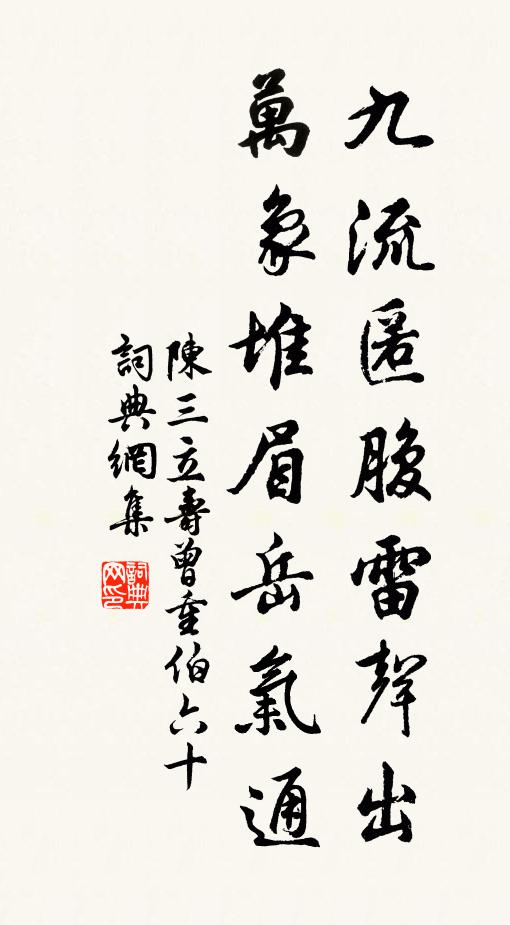 九流匿腹雷聲出
萬象堆眉岳氣通
陳三立壽曾重伯六十
詞典網集
詞典
网印